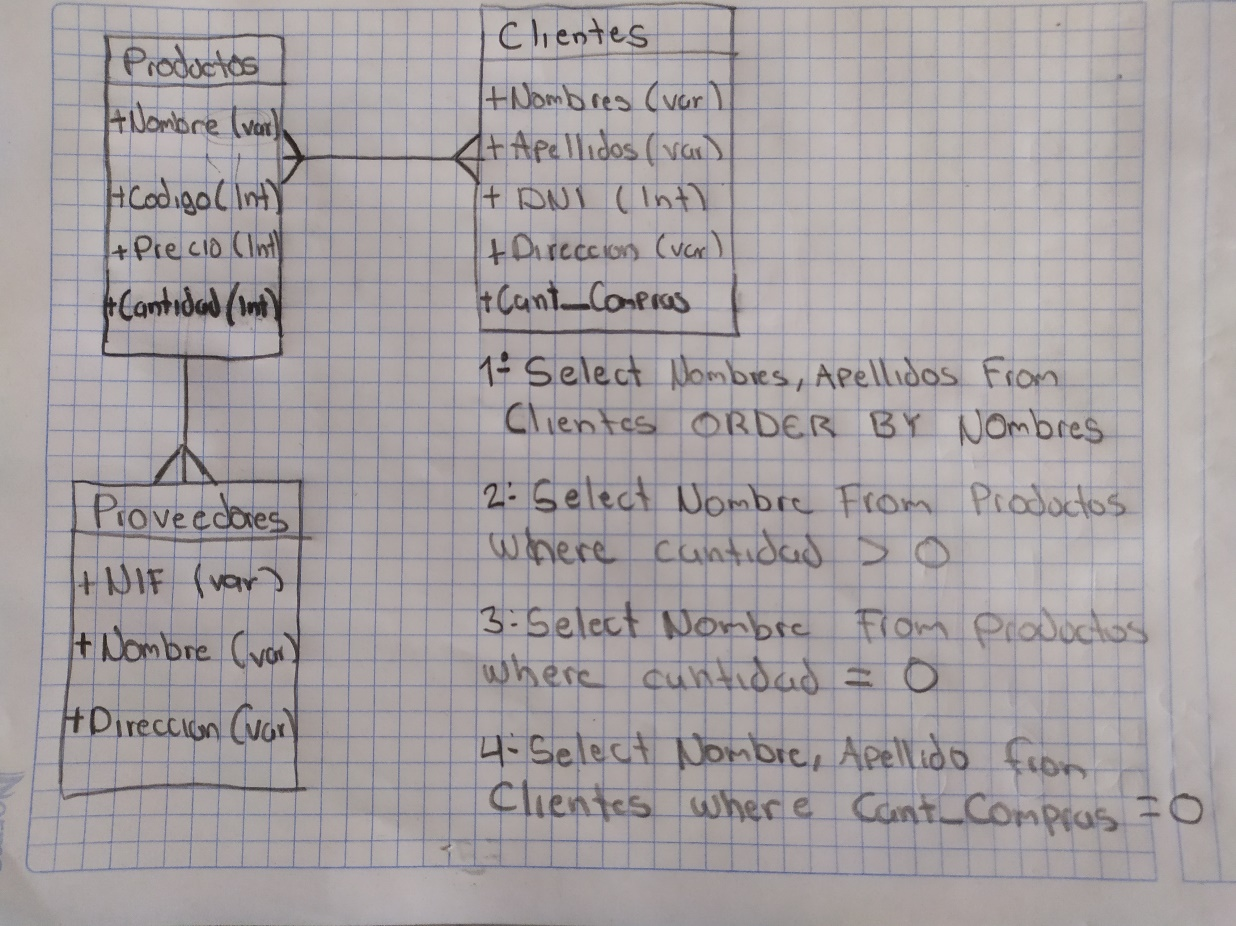 Productos
+Nombre (var)
+Codigo (Int)
+Precio (Int)
+Cantidad (Int)
Clientes
+Nombres (var)
+Apellidos (var)
+ DNI (Int)
+Direccion (var)
+Cant_Compras
Proveedores
+ NIF (var)
+ Nombre (var)
+Direccion (var)
1- Select Nombres, Apellidos From
Clientes ORDER BY Nombres
2- Select Nombre From Productos
Where cantidad > 0
3- Select Nombre From productos
where cantidad = 0
4- Select Nombre, Apellido from
Clientes where Cant_Compras = 0